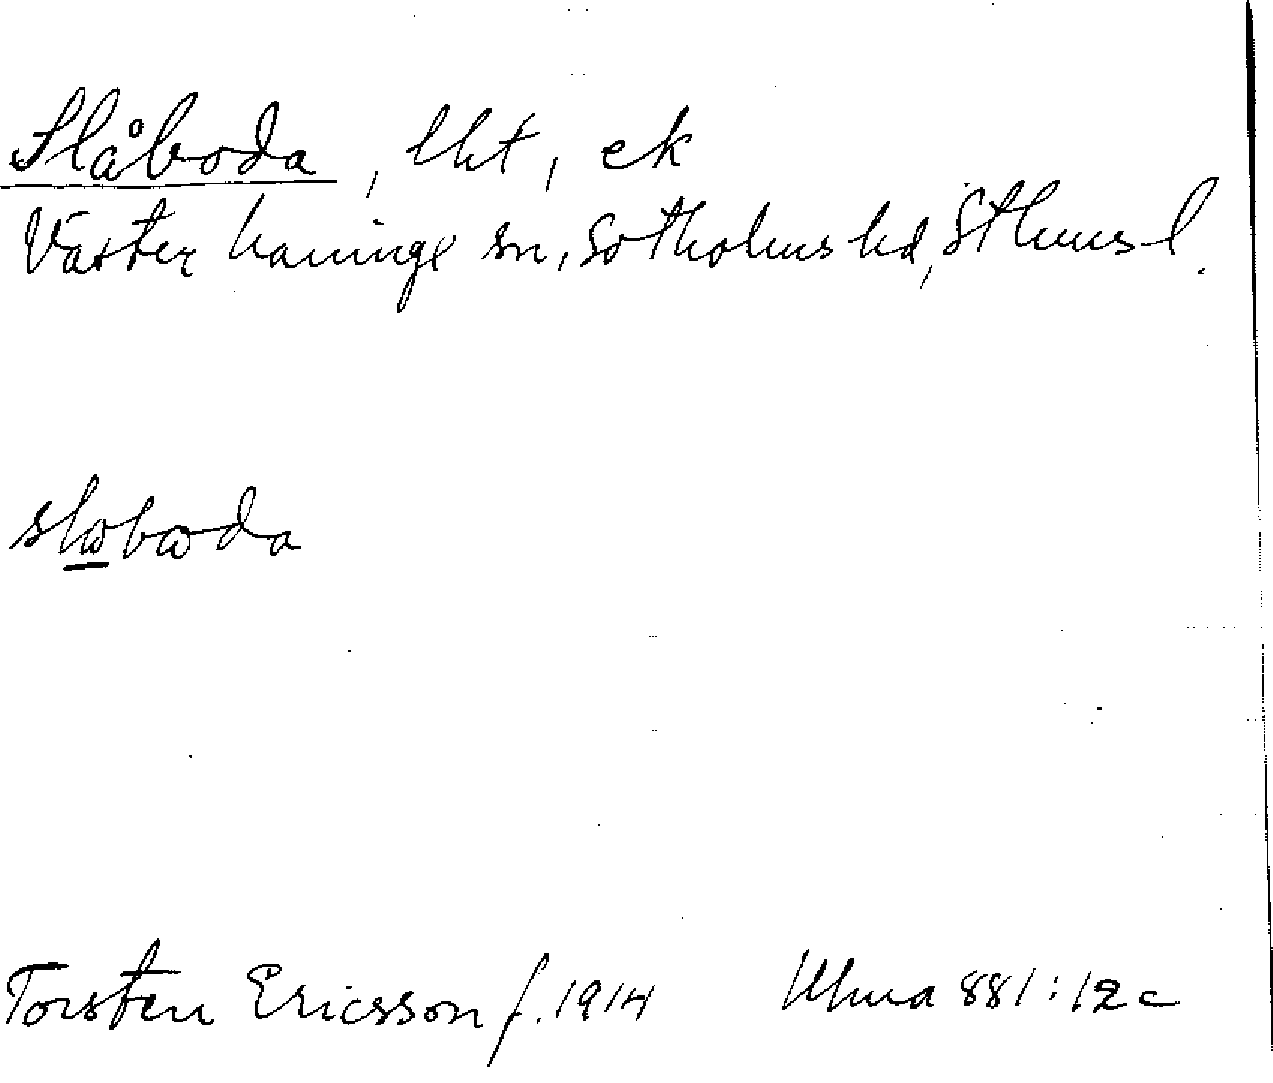 Slåboda, lht, ek
Västerhaninge sn, Sotholms hd, Sthms l.
slɷbɷda
Torsten Ericsson f. 1914 Ulma 881:12c